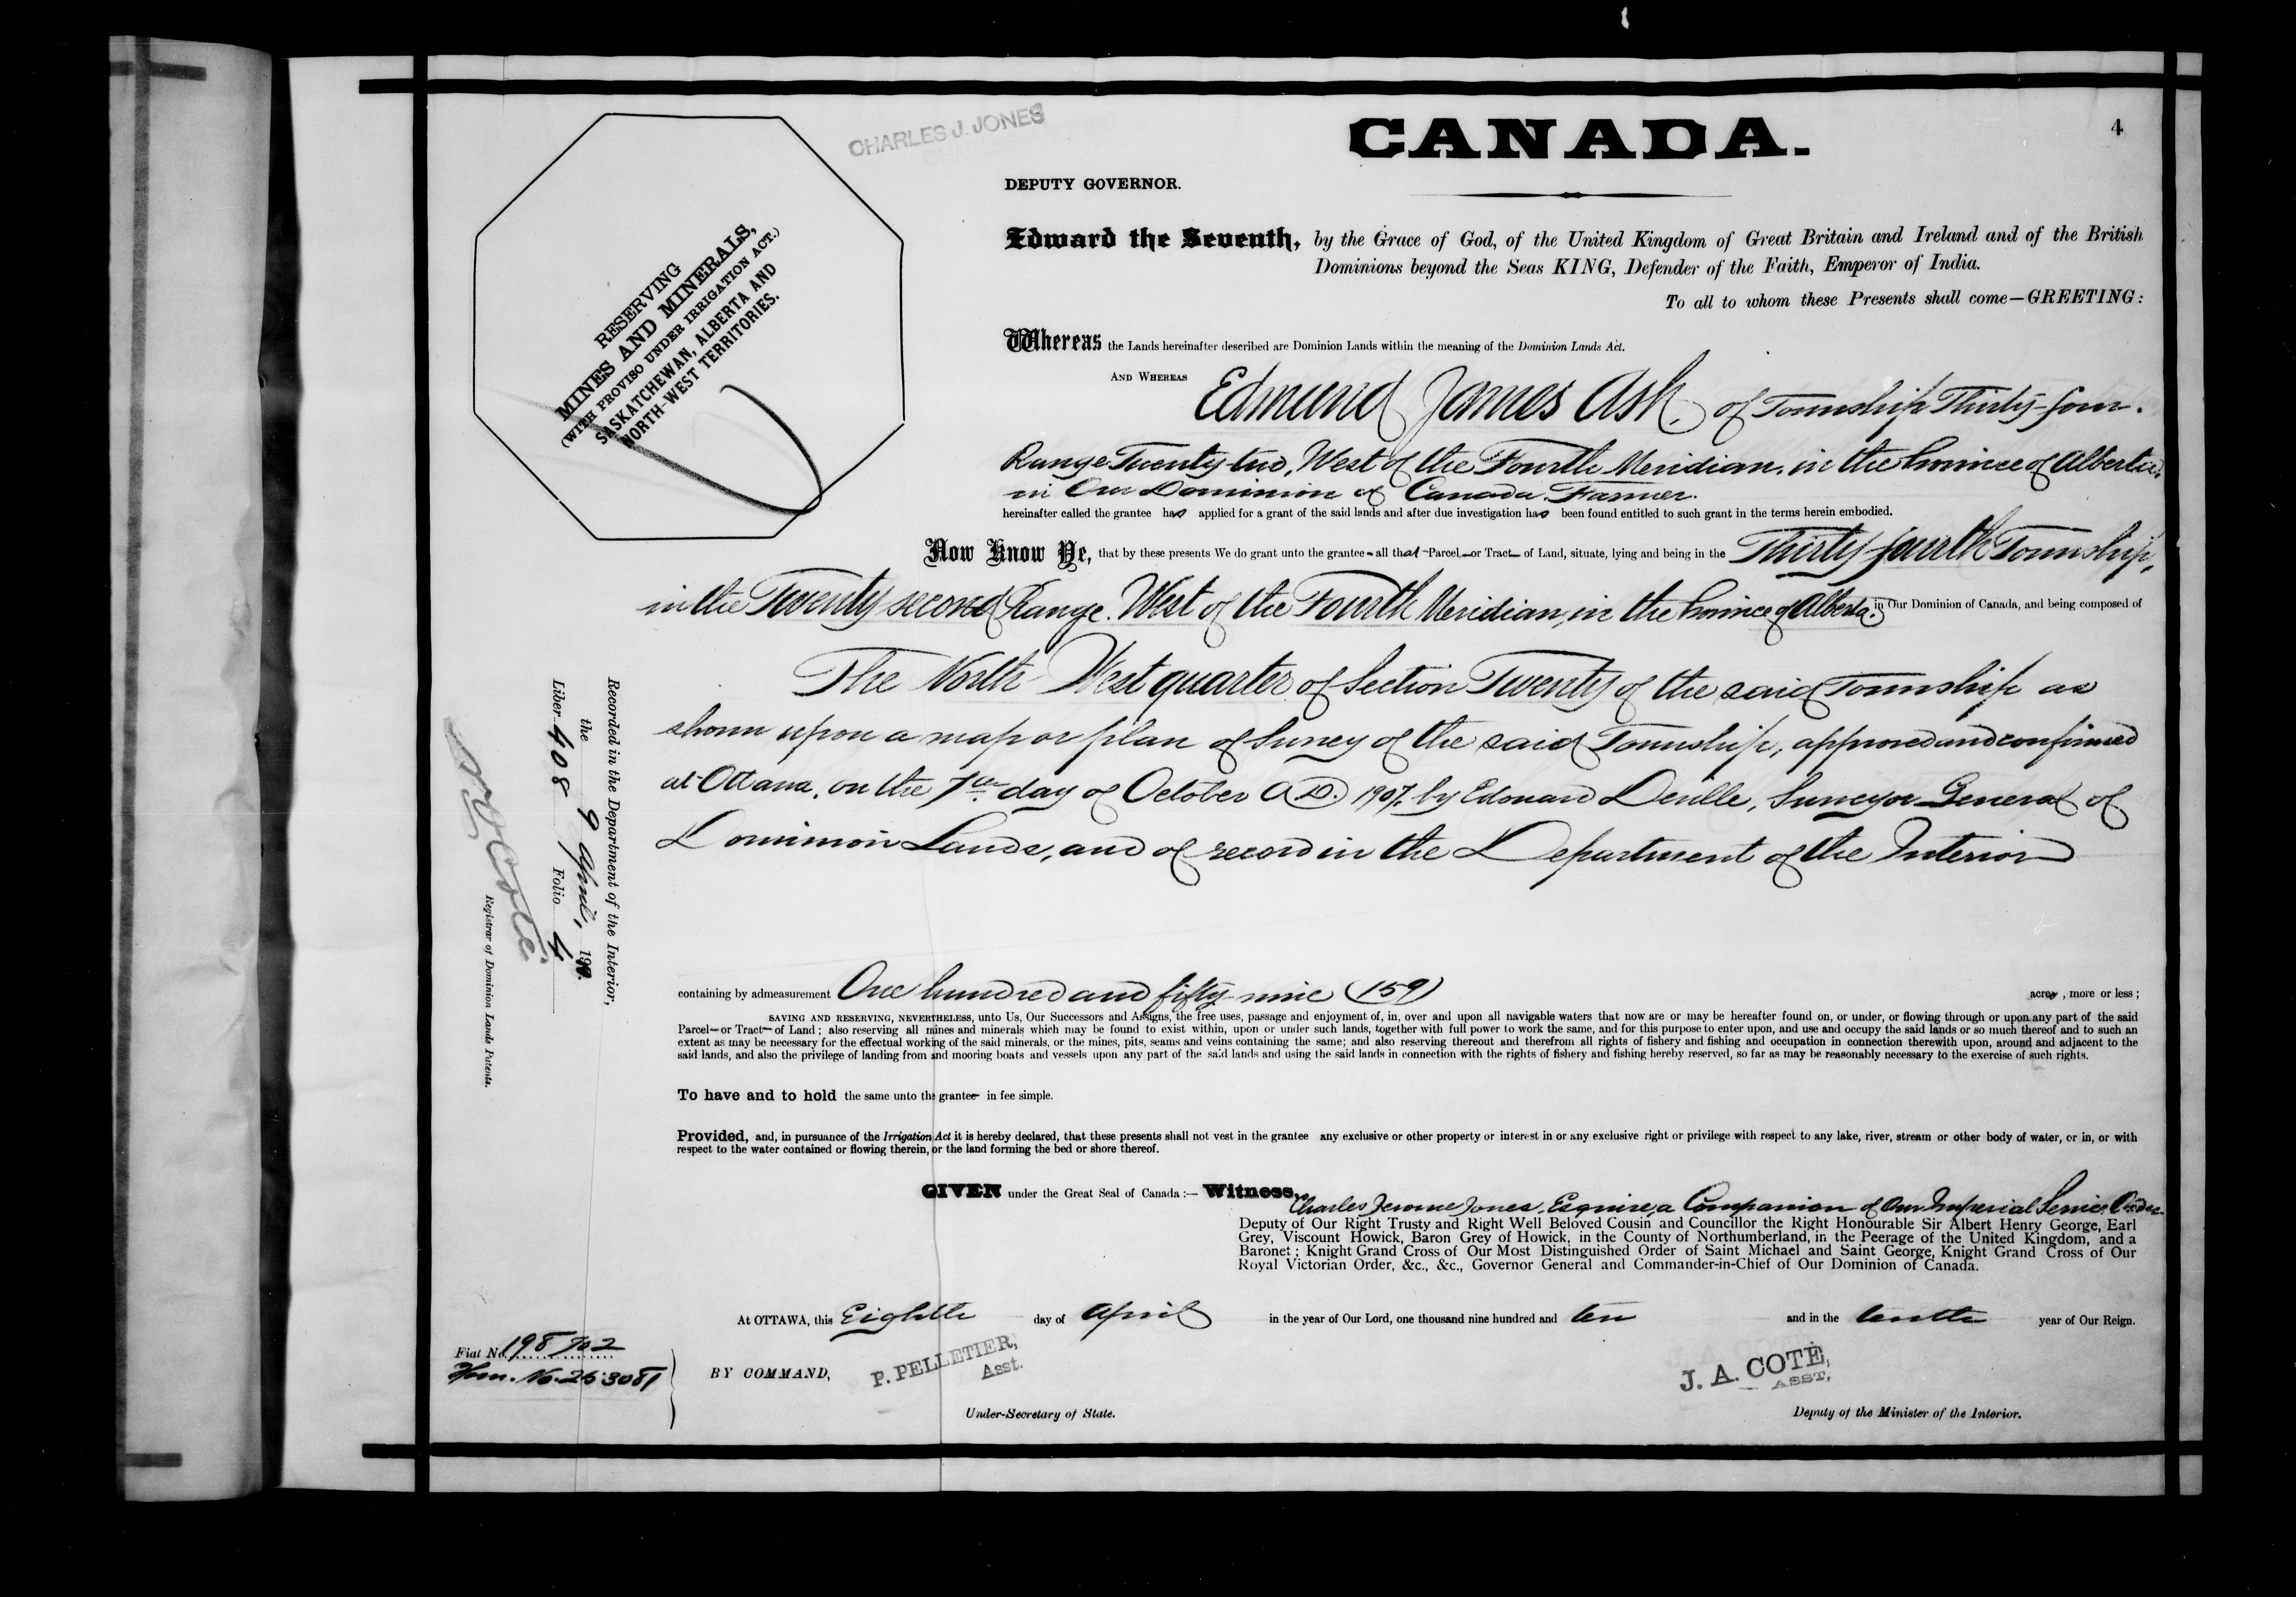 4
CHARLES J. JONES
CANADA.
DEPUTY GOVERNOR.
RESERVING
MINES AND MINERALS,
(WITH PROVISO UNDER IRRIGATION ACT.)
SASKATCHEWAN, ALBERTA AND
NORTH-WEST TERRITORIES.
Edward the Seventh, by the Grace of God, of the United Kingdom of Great Britain and Ireland and of the British
Dominions beyond the Seas KING, Defender of the Faith, Emperor of India.
To all to whom these Presents shall come—GREETING:
Whereas the Lands hereinafter described are Dominion Lands within the meaning of the Dominion Lands Act.
AND WHEREAS Edmund James Ash, of Township Thirty-four.
Range Twenty-two, West of the Fourth Meridian, in the Province of Alberta,
in Our Dominion of Canada, Farmer.
hereinafter called the grantee has applied for a grant of the said lands and after due investigation has been found entitled to such grant in the terms herein embodied.
Now Know Ye, that by these presents We do grant unto the grantee—all that Parcel—or Tract—of Land, situate, lying and being in the Thirty-fourth Township,
in the Twenty second Range. West of the Fourth Meridian, in the Province of Alberta. in Our Dominion of Canada, and being composed of
The North West quarter of Section Twenty of the said Township as
shown upon a map or plan of Survey of the said Township, approved and confirmed
at Ottawa, on the 7th day of October A.D. 1907, by Edouard Deville, Surveyor General of
Dominion Lands, and of record in the Department of the Interior
containing by admeasurement One hundred and fifty-nine (159) acres, more or less;
SAVING AND RESERVING, NEVERTHELESS, unto Us, Our Successors and Assigns, the free uses, passage and enjoyment of, in, over and upon all navigable waters that now are or may be hereafter found on, or under, or flowing through or upon any part of the said
Parcel—or Tract—of Land; also reserving all mines and minerals which may be found to exist within, upon or under such lands, together with full power to work the same, and for this purpose to enter upon, and use and occupy the said lands or so much thereof and to such an
extent as may be necessary for the effectual working of the said minerals, or the mines, pits, seams and veins containing the same; and also reserving thereout and therefrom all rights of fishery and fishing and occupation in connection therewith upon, around and adjacent to the
said lands, and also the privilege of landing from and mooring boats and vessels upon any part of the said lands and using the said lands in connection with the rights of fishery and fishing hereby reserved, so far as may be reasonably necessary to the exercise of such rights.
To have and to hold the same unto the grantee in fee simple.
Provided, and, in pursuance of the Irrigation Act it is hereby declared, that these presents shall not vest in the grantee any exclusive or other property or interest in or any exclusive right or privilege with respect to any lake, river, stream or other body of water, or in, or with
respect to the water contained or flowing therein, or the land forming the bed or shore thereof.
GIVEN under the Great Seal of Canada:— Witness, Charles Jerome Jones, Esquire, a Companion of Our Imperial Service Order.
Deputy of Our Right Trusty and Right Well Beloved Cousin and Councillor the Right Honourable Sir Albert Henry George, Earl
Grey, Viscount Howick, Baron Grey of Howick, in the County of Northumberland, in the Peerage of the United Kingdom, and a
Baronet; Knight Grand Cross of Our Most Distinguished Order of Saint Michael and Saint George, Knight Grand Cross of Our
Royal Victorian Order, &c., &c., Governor General and Commander-in-Chief of Our Dominion of Canada.
At OTTAWA, this Eighth day of April in the year of Our Lord, one thousand nine hundred and ten and in the tenth year of Our Reign.
BY COMMAND,
P. PELLETIER,
Asst.
Under-Secretary of State.
J. A. COTÉ,
ASST,
Deputy of the Minister of the Interior.
Fiat No. 198702
Hom. No. 253081
Recorded in the Department of the Interior,
the 9 April, 1910.
Liber 408 Folio 4
Registrar of Dominion Lands Patents.